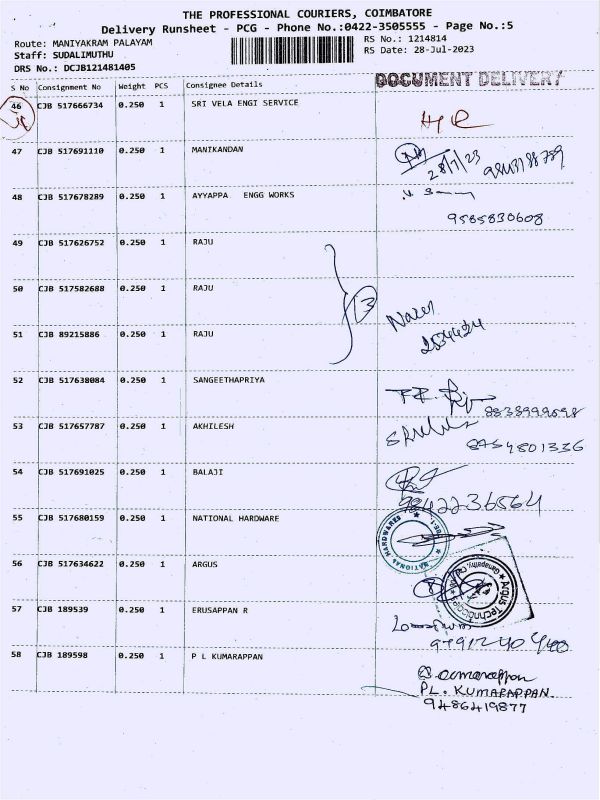 THE PROFESSIONAL COURIERS, COIMBATORE
Delivery Runsheet - PCG - Phone No.:0422-3505555 - Page No.:5
Route: MANIYAKRAM PALAYAM
RS No.: 1214814
Staff: SUDALIMUTHU
RS Date: 28-Jul-2023
DRS No.: DCJB121481405
DOCUMENT DELIVERY
S No Consignment No Weight PCS Consignee Details
46 CJB 517666734 0.250 1 SRI VELA ENGI SERVICE
47 CJB 517691110 0.250 1 MANIKANDAN
28/7/23
48 CJB 517678289 0.250 1 AYYAPPA ENGG WORKS
9585830608
49 CJB 517626752 0.250 1 RAJU
50 CJB 517582688 0.250 1 RAJU
3
51 CJB 89215886 0.250 1 RAJU
52 CJB 517638084 0.250 1 SANGEETHAPRIYA
53 CJB 517657787 0.250 1 AKHILESH
8754801336
54 CJB 517691025 0.250 1 BALAJI
9842236564
55 CJB 517680159 0.250 1 NATIONAL HARDWARE
NATIONAL HARDWARES
56 CJB 517634622 0.250 1 ARGUS
Argus Technologies
57 CJB 189539 0.250 1 ERUSAPPAN R
58 CJB 189598 0.250 1 P L KUMARAPPAN
PL. KUMARAPPAN
9486419877